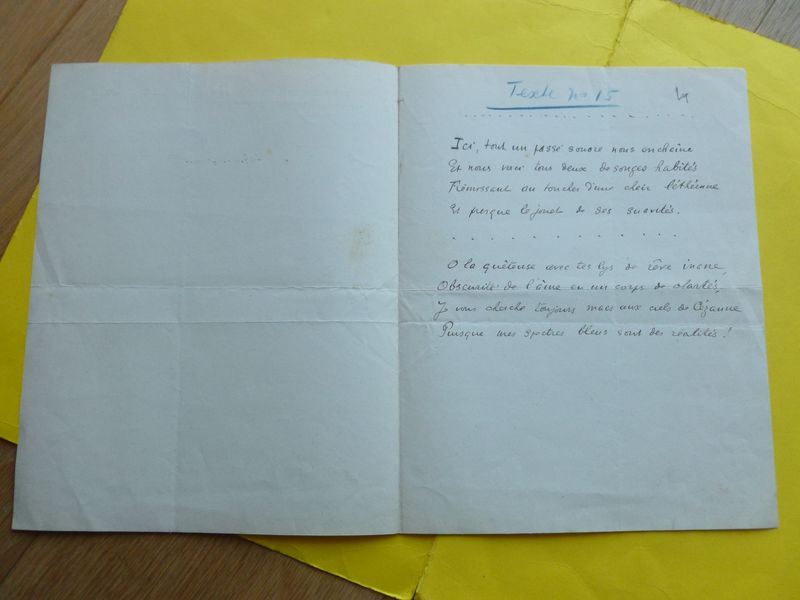 Texte no 15
4
Ici, tout un passé sonore nous enchaîne
Et nous voici tous deux de songes habités
Frémissant au toucher d'une chair léthéenne
Et presque le jouet de ses suavités.
O la quêteuse avec tes lys de rêve
Obscurité de l'âme en un corps de clartés,
Je vous cherche toujours mais aux ciels de Cézanne
Puisque mes spectres bleus sont des réalités !